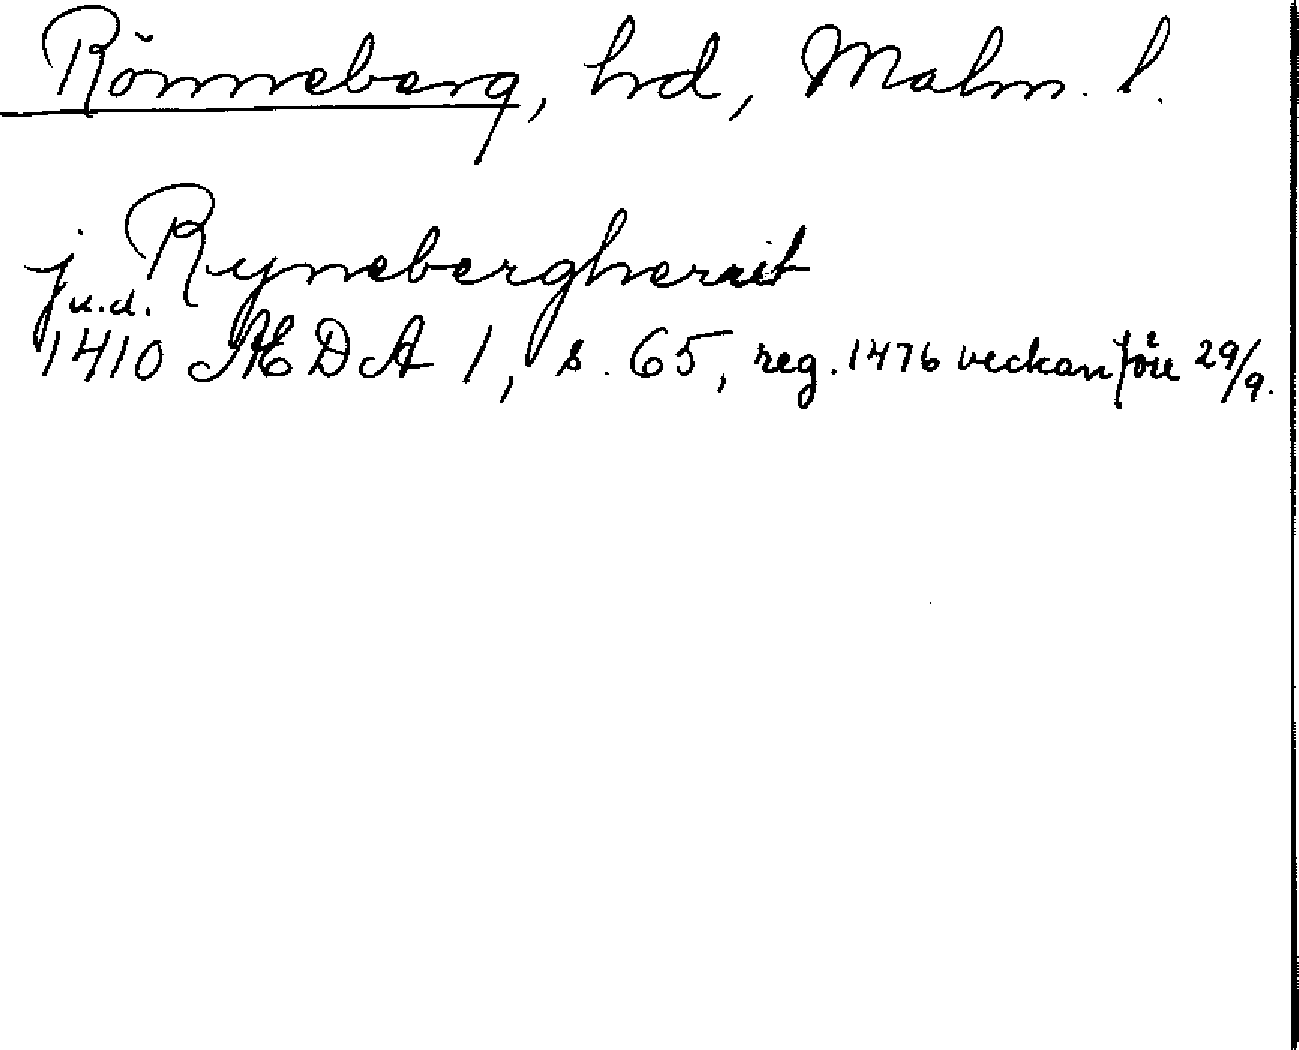 Rönneberg, hrd, Malm. l.
j Rynebergherrit
u.d.
1410 ÆDA 1, s. 65, reg. 1476 veckan före 29/9.